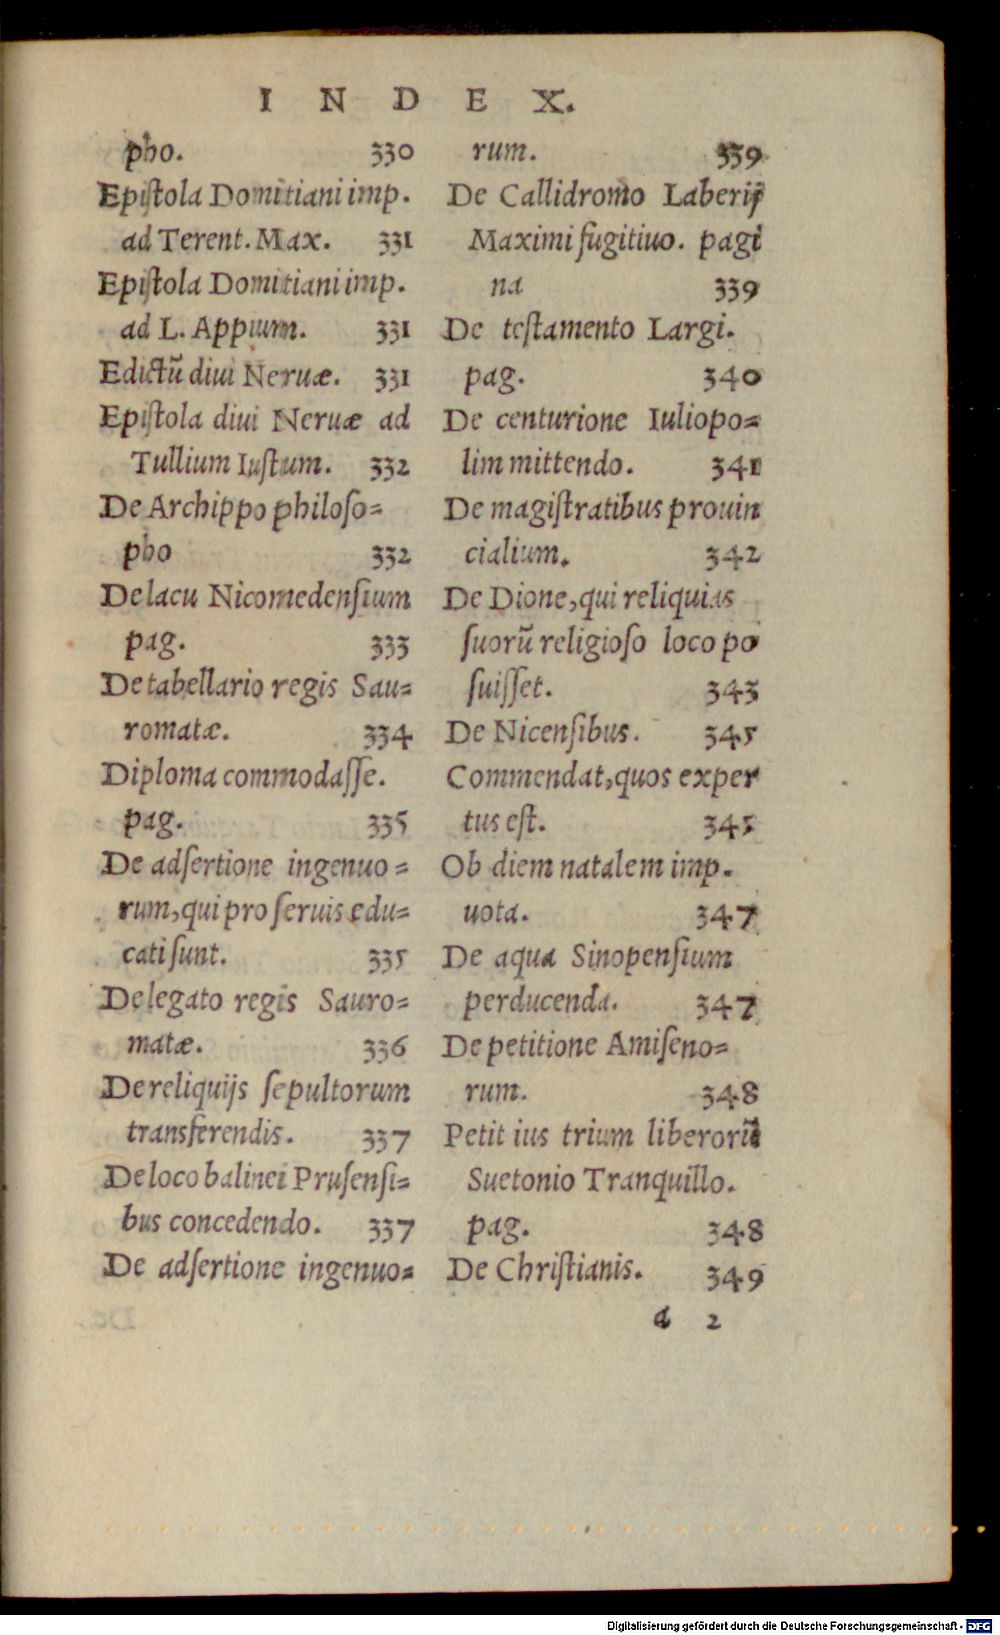 INDEX.
pho. 330
Epistola Domitiani imp.
ad Terent. Max. 331
Epistola Domitiani imp.
ad L. Appium. 331
Edictũ diui Neruæ. 331
Epistola diui Neruæ ad
Tullium Iustum. 332
De Archippo philoso=
pho 332
De lacu Nicomedensium
pag. 333
De tabellario regis Sau=
romatæ. 334
Diploma commodasse.
pag. 335
De adsertione ingenuo=
rum, qui pro seruis edu=
cati sunt. 335
De legato regis Sauro=
matæ. 336
De reliquijs sepultorum
transferendis. 337
De loco balinei Prusensi=
bus concedendo. 337
De adsertione ingenuo=
rum. 339
De Callidromo Laberij
Maximi fugitiuo. pagi
na 339
De testamento Largi.
pag. 340
De centurione Iuliopo=
lim mittendo. 341
De magistratibus prouin
cialium. 342
De Dione, qui reliquias
suorũ religioso loco po
suisset. 343
De Nicensibus. 345
Commendat, quos exper
tus est. 345
Ob diem natalem imp.
uota. 347
De aqua Sinopensium
perducenda. 347
De petitione Amiseno=
rum. 348
Petit ius trium liberorũ
Suetonio Tranquillo.
pag. 348
De Christianis. 349
a 2
Digitalisierung gefördert durch die Deutsche Forschungsgemeinschaft - DFG